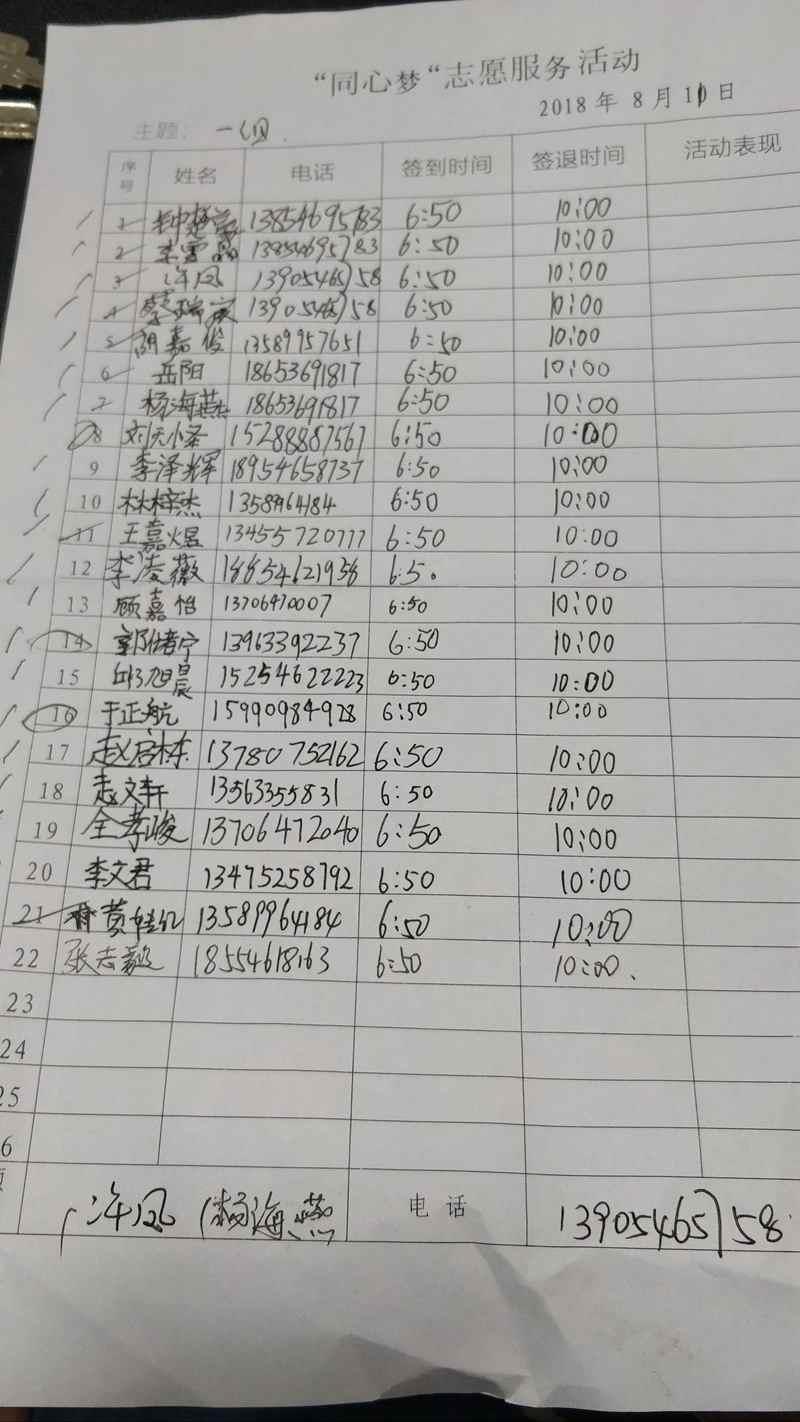 “同心梦“志愿服务活动
2018 年 8 月 11 日
主题： 一组
序号 姓名 电话 签到时间 签退时间 活动表现
1 13854695783 6:50 10:00
2 李雪晶 13854695783 6:50 10:00
3 许凤 13905465758 6:50 10:00
4 蔡瑞宸 13905465758 6:50 10:00
5 胡嘉俊 13589957651 6:50 10:00
6 岳阳 18653691817 6:50 10:00
7 杨海燕 18653691817 6:50 10:00
8 15288887567 6:50 10:00
9 李泽辉 18954658737 6:50 10:00
10 林梓杰 1358964184 6:50 10:00
11 王嘉煜 13455720777 6:50 10:00
12 李凌薇 18854621938 6:50 10:00
13 顾嘉怡 13706470007 6:50 10:00
14 13963392237 6:50 10:00
15 邱旭晨 15254622223 6:50 10:00
16 于正航 15990984928 6:50 10:00
17 赵启栋 13780752162 6:50 10:00
18 赵文轩 13563355831 6:50 10:00
19 全孝峻 13706472040 6:50 10:00
20 李文君 13475258792 6:50 10:00
21 13589964184 6:50 10:00
22 张志毅 18554618163 6:50 10:00、
23
24
25
6
许凤 杨海燕 电 话 13905465758